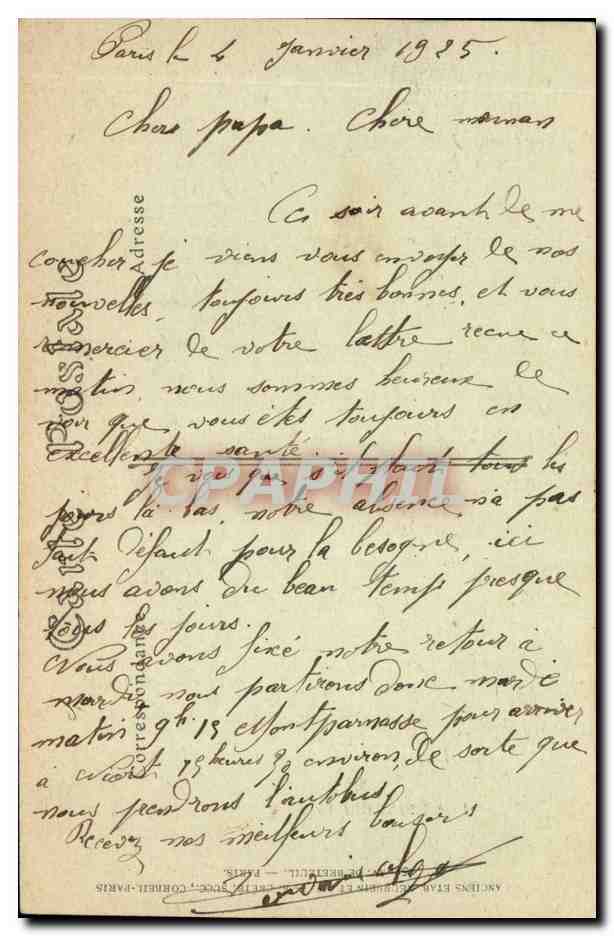 Paris le 4 Janvier 1925.
Chers papa. Chère maman
Ce soir avant de me
coucher je viens vous envoyer de nos
nouvelles, toujours très bonnes, et vous
remercier de votre lettre recue ce
matin, nous sommes heureux de
voir que vous êtes toujours en
excellente santé
Je vois que s'il pleut tous les
jours là bas, notre absence n'a pas
fait défaut pour la besogne, ici
nous avons du beau temps presque
tous les jours.
Nous avons fixé notre retour à
mardi nous partirons donc mardi
matin 9h 15 Montparnasse pour arriver
à Niort 15 heures 90 environ, de sorte que
nous prendrons l'autobus
Recevez nos meilleurs baisers
Carte Postale
Correspondance
Adresse
CPAPHIL
ANCIENS ETAB. NEURDEIN ET CRÉTÉ, SUCC., CORBEIL-PARIS
DE BRETEUIL. — PARIS.